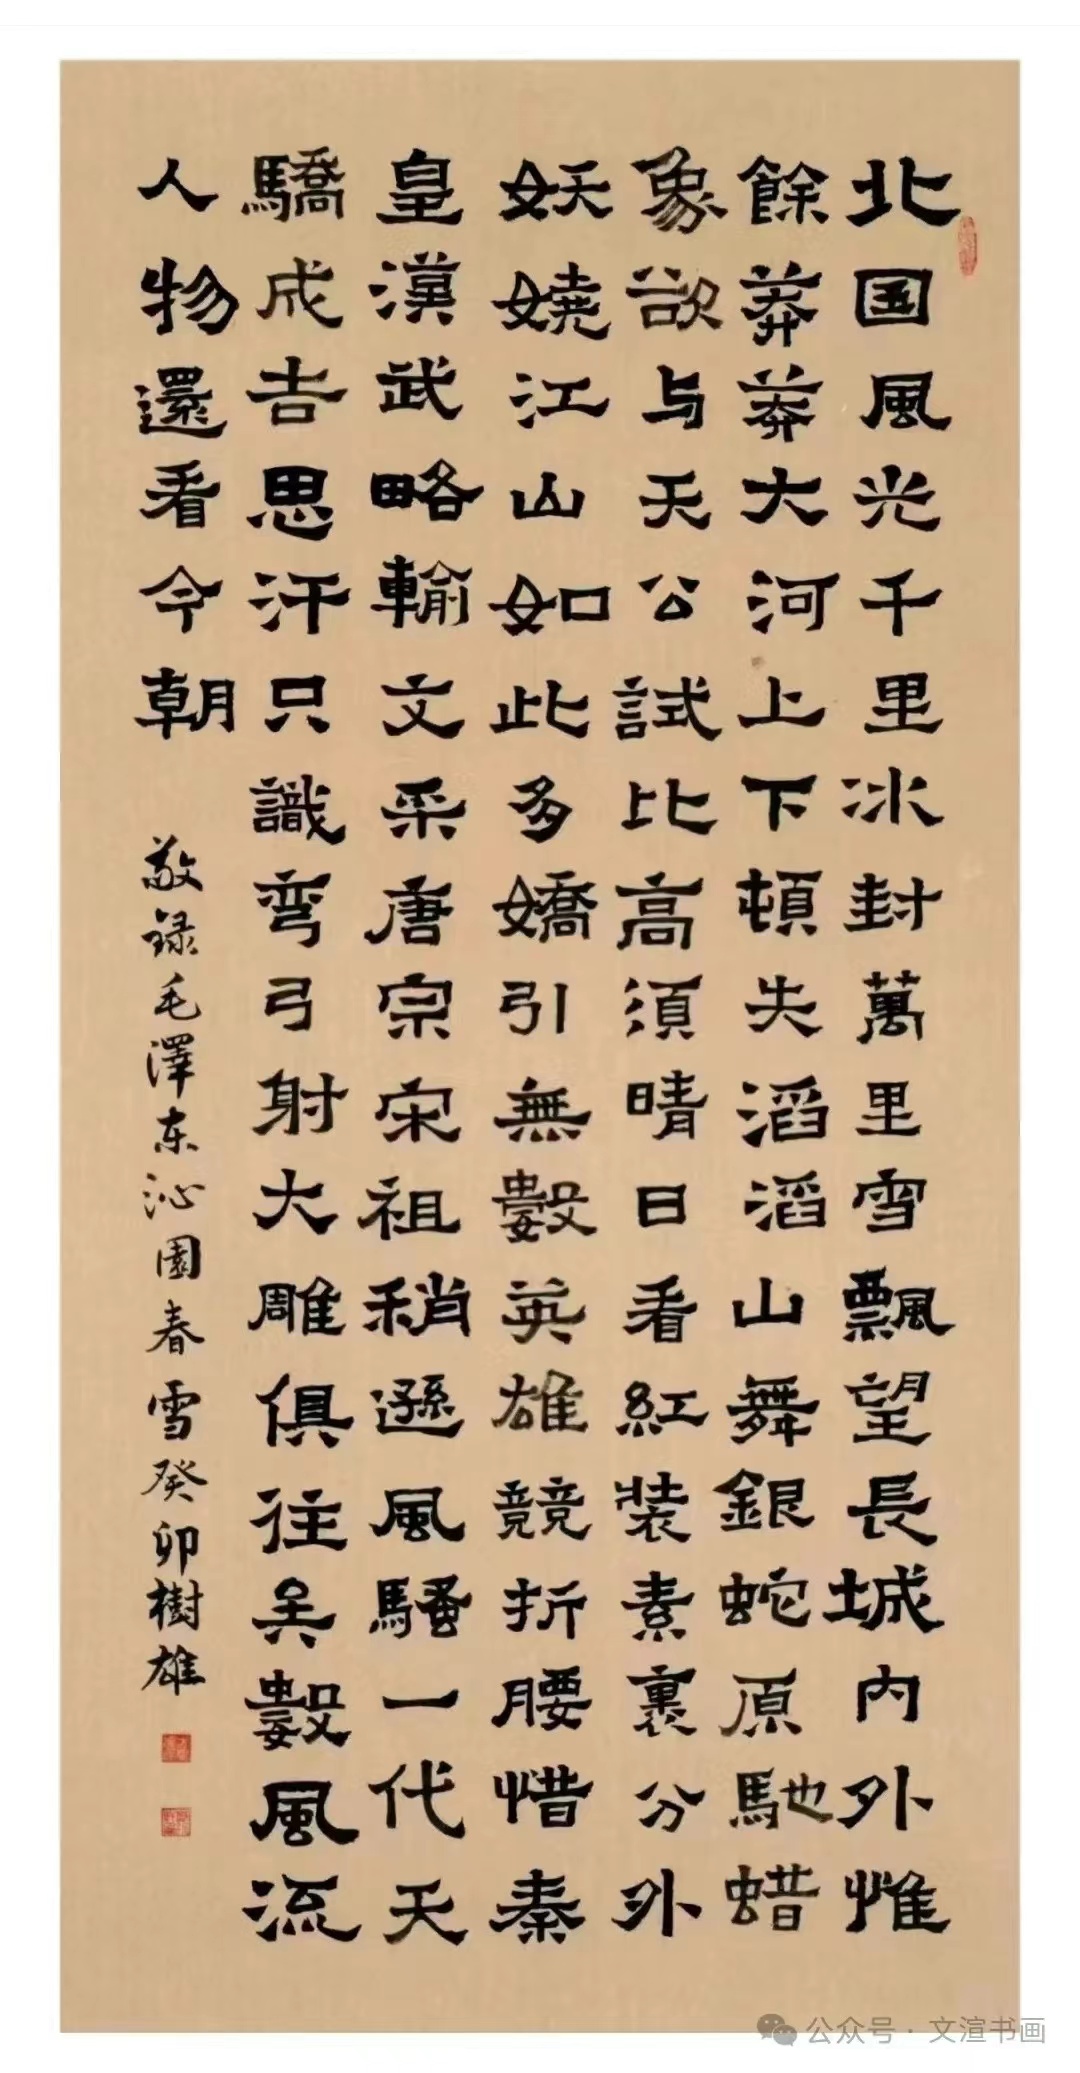 北国風光千里冰封萬里雪飄望長城內外惟
餘莽莽大河上下頓失滔滔山舞銀蛇原馳蜡
象欲与天公試比高須晴日看紅裝素裹分外
妖嬈江山如此多嬌引無數英雄競折腰惜秦
皇漢武略輸文采唐宗宋祖稍遜風騷一代天
驕成吉思汗只識弯弓射大雕俱往矣數風流
人物還看今朝
敬录毛澤东沁園春雪癸卯樹雄
公众号·文渲书画